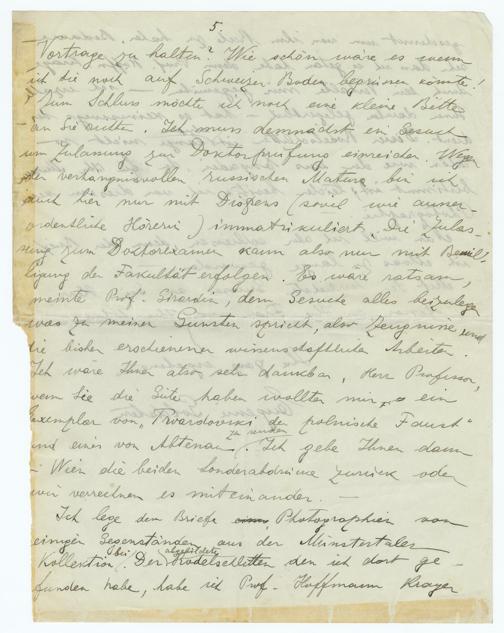 5
Vorträge zu halten? Wie schön wäre es wenn
ich die noch auf Schweizer Boden begrüssen könnte!
Zum Schluss möchte ich noch eine kleine Bitte
an Sie richten. Ich muss demnächst ein Gesuch
um Zulassung zur Doktorprüfung einreichen. Wegen
der verhängnisvollen russischen Matura bin ich
auch hier nur mit Dispens (soviel wie ausser-
ordentliche Hörerin) immatrikuliert. Die Zulas-
sung zum Doktorexamen kann also nur mit Bewil-
ligung der Fakultät erfolgen. Es wäre ratsam,
meinte Prof. Girardin, dem Gesuche alles beizulegen
was zu meinen Gunsten spricht, also Zeugnisse und
die bisher erschienenen wissenschaftlichen Arbeiten.
Ich wäre Ihnen also sehr dankbar, Herr Professor,
wenn Sie die Güte haben wollten mir ein
Exemplar von "Twardowski, der polnische Faust"
und eines von Altenau zu senden. Ich gebe Ihnen dann
in Wien die beiden Sonderabdrücke zurück oder
wir verrechnen es miteinander. —
Ich lege dem Briefe Photographien von
einigen Gegenständen aus der Münstertaler
Kollektion bei. Der abgebildete Rodelschlitten den ich dort ge-
funden habe, habe ich Prof. Hoffmann Krayer